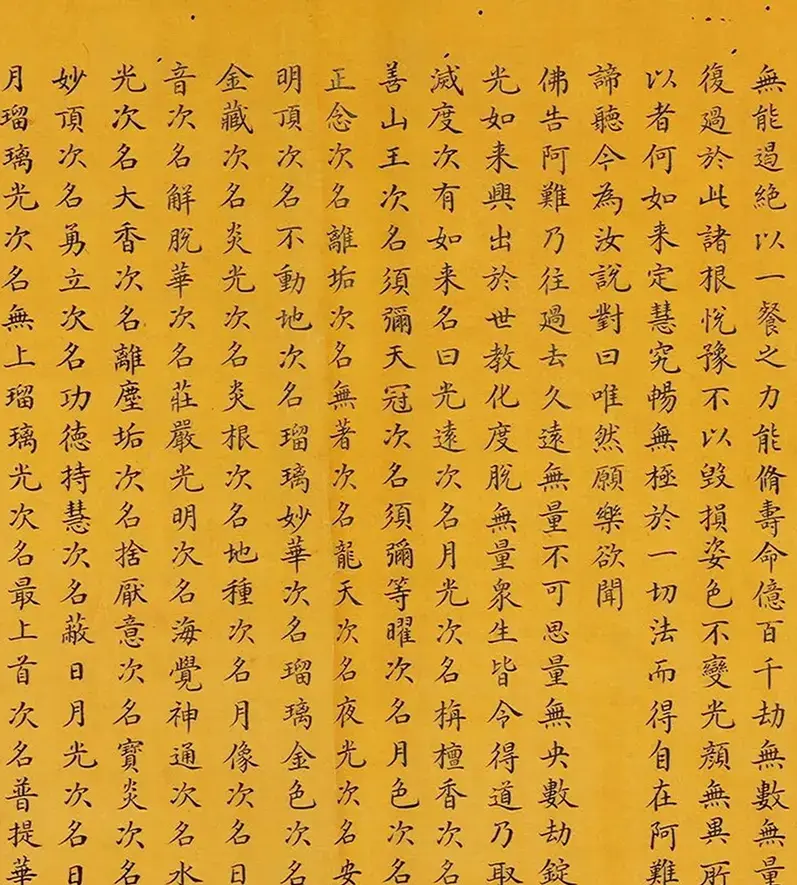 無能遏絕以一餐之力能脩壽命億百千劫無數無量
復過於此諸根悅豫不以毀損姿色不變光顏無異所
以者何如来定慧究暢無極於一切法而得自在阿難
諦聽今為汝說對曰唯然願樂欲聞
佛告阿難乃往過去久遠無量不可思量無央數劫錠
光如来興出於世教化度脫無量衆生皆令得道乃取
滅度次有如来名曰光遠次名月光次名栴檀香次名
善山王次名須彌天冠次名須彌等曜次名月色次名
正念次名離垢次名無著次名龍天次名夜光次名安
明頂次名不動地次名瑠璃妙華次名瑠璃金色次名
金藏次名炎光次名炎根次名地種次名月像次名日
音次名解脫華次名莊嚴光明次名海覺神通次名水
光次名大香次名離塵垢次名捨厭意次名寶炎次名
妙頂次名勇立次名功德持慧次名蔽日月光次名日
月瑠璃光次名無上瑠璃光次名最上首次名普提華